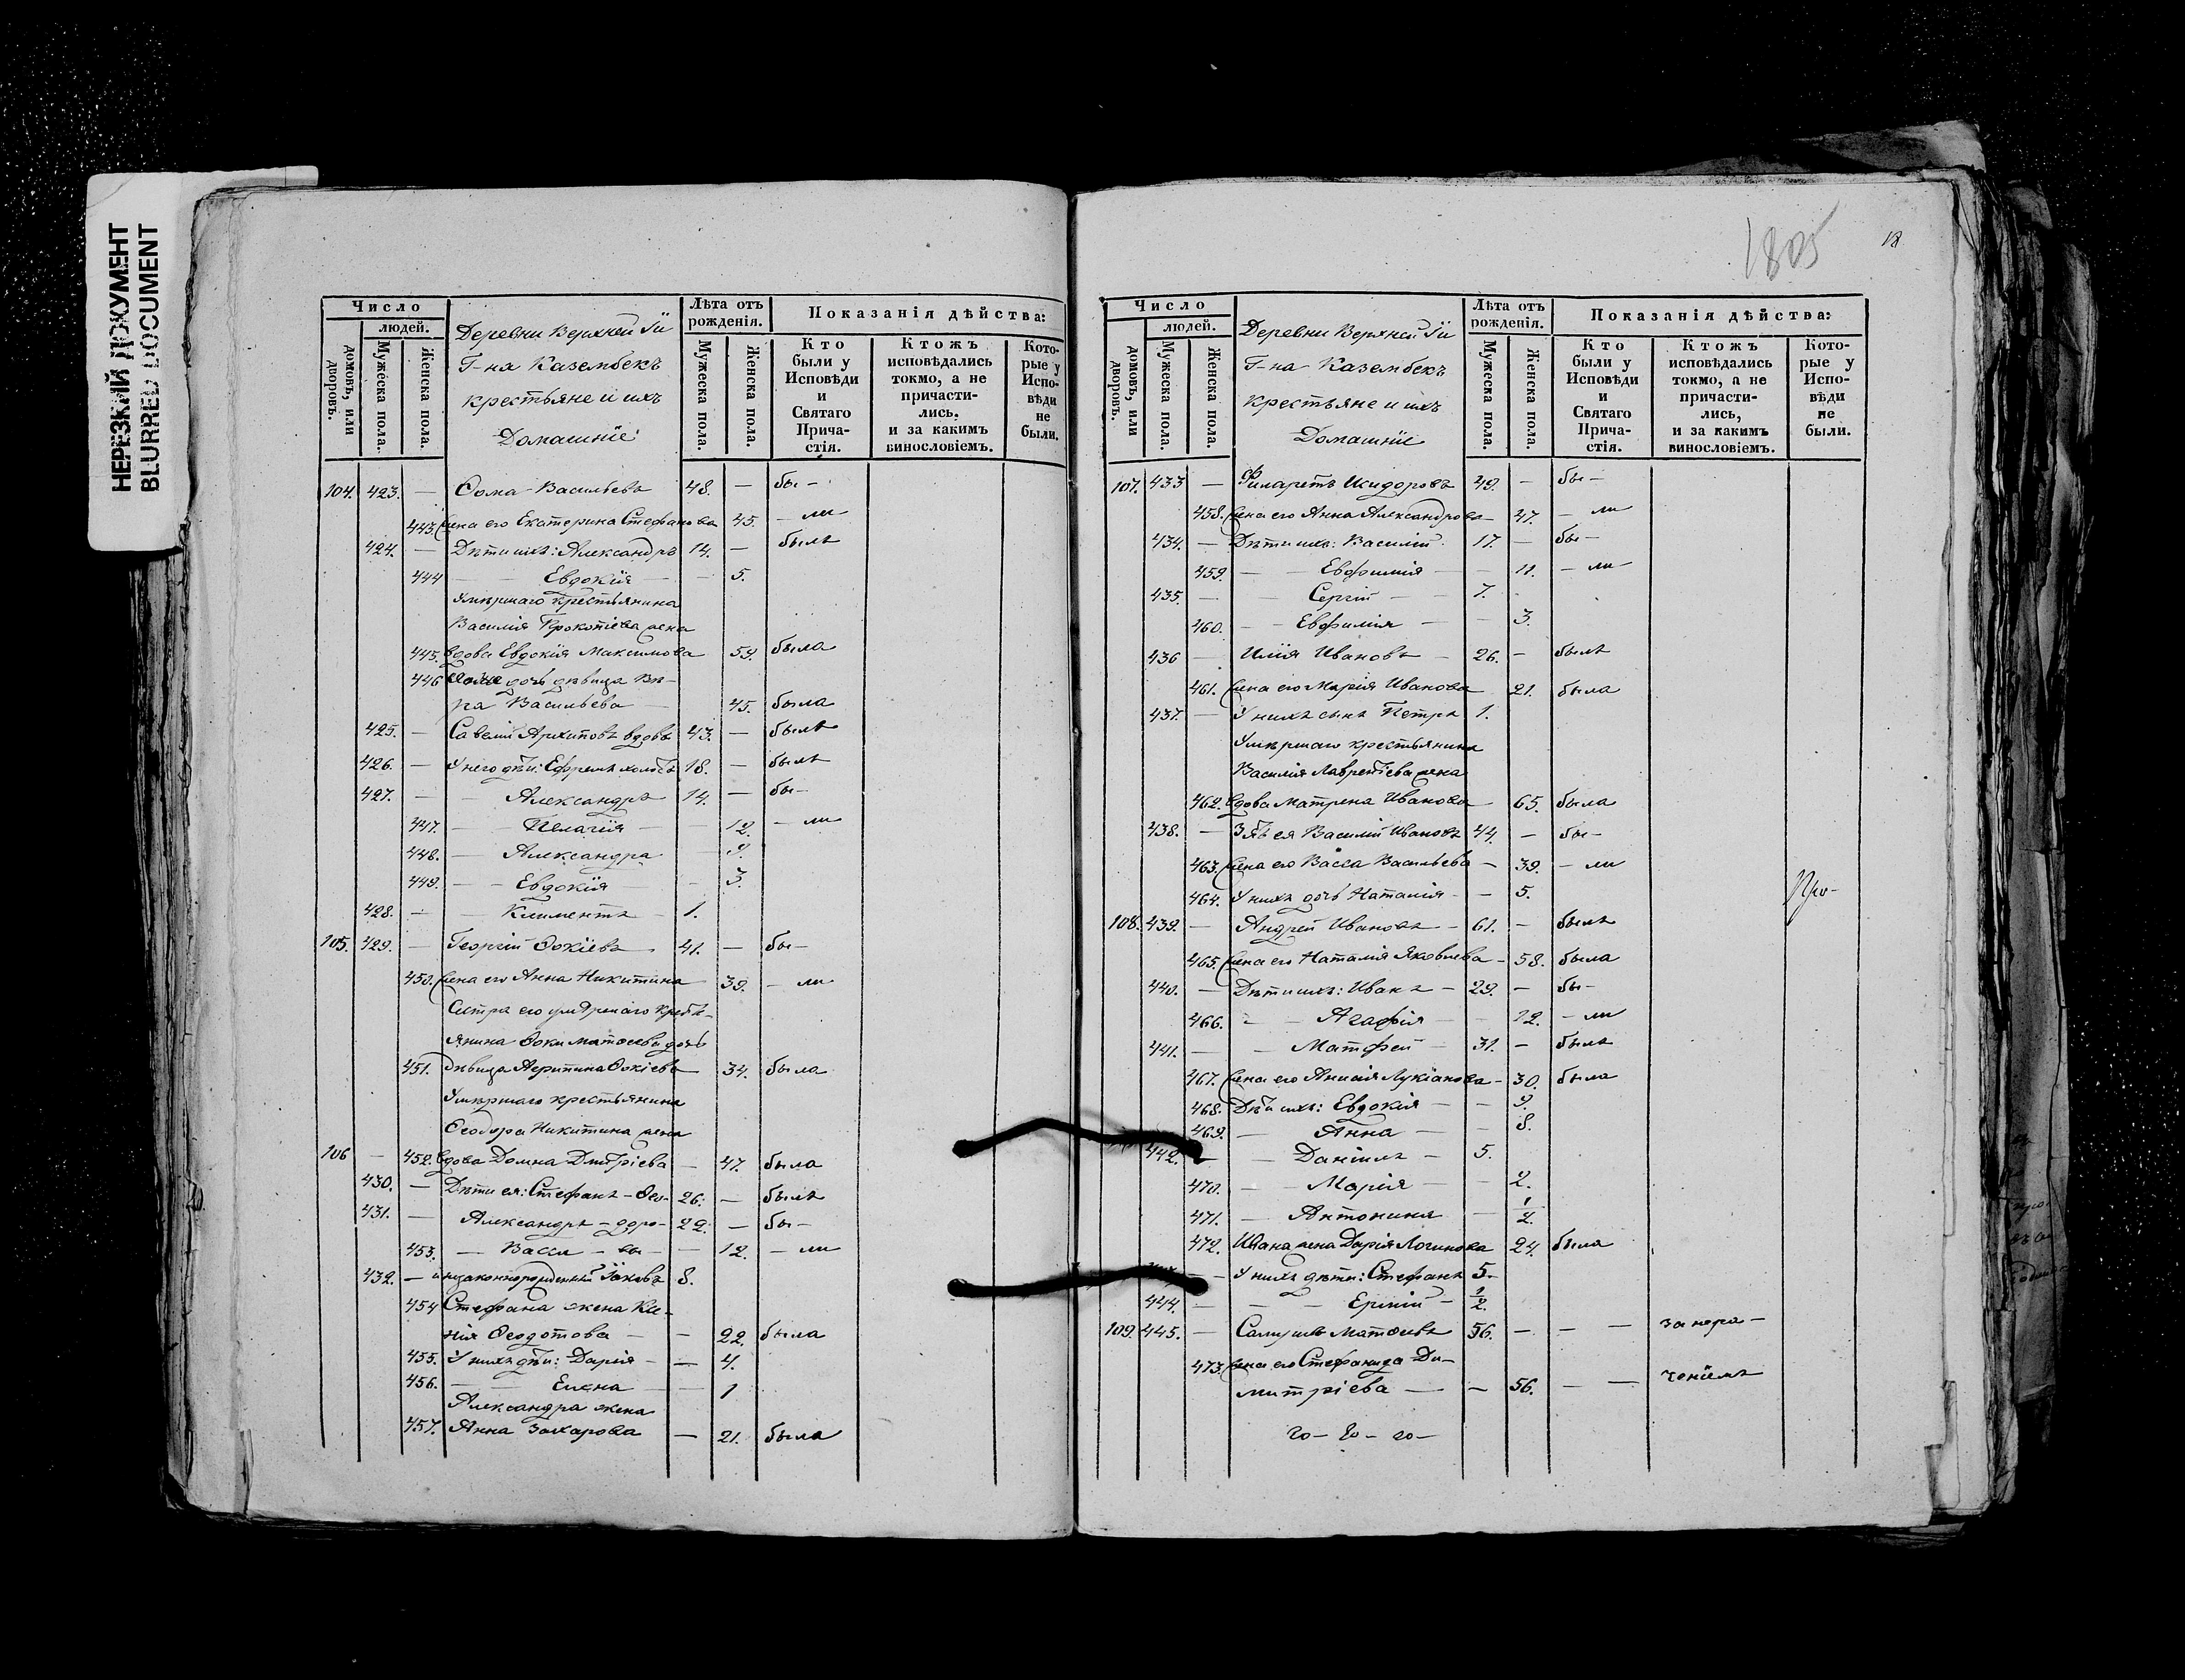 НЕРЕЗКИЙ ДОКУМЕНТ
BLURRED DOCUMENT
Число
людей.
домовъ, или дворовъ.
Мужеска пола.
Женска пола.
Деревни Верхней
Г-на Казембекъ
крестьяне и ихъ
Домашнïе
Лѣта отъ рожденія.
Мужеска пола.
Женска пола.
Показанія дѣйства:
Кто были у Исповѣди и Святаго Прича-стія.
Ктожъ исповѣдались токмо, а не причасти-лись. и за какимъ винословіемъ.
Кото-рые у Испо-вѣди не были.
104. 423. — Ѳома Васильевъ 48. — бы-
443. жена его Екатерина Стефанова 45. — ли
424. — Дѣти ихъ: Александръ 14. — былъ
444 — — Евдокïя — 5.
Умѣршаго крестьянина
Василія Прокопіева жена
445. вдова Евдокія Максимова 59. была
446 дочь дѣвица Вѣ-
ра Васильева — 45. была
425. — Савелій Архиповъ вдовъ 43. — былъ
426. — У него дѣти: Ефремъ холостъ 18. — былъ
427. — — Александръ 14. — бы-
447. — Пелагïя — 12. — ли
448. — Александра — 9.
449. — — Евдокïя — 3.
428. — — Климентъ — 1.
105. 429. — Георгій Ѳокіевъ 41. — бы-
450. жена его Анна Никитина 39. — ли
Сестра его умѣршаго крест-
янина Ѳоки Матѳеева дочь
451. дѣвица Агрипина Ѳокіева 34. была
Умѣршаго крестьянина
Ѳеодора Никитина жена
106 — 452. вдова Домна Дмитріева — 47. была
430. — Дѣти ея: Стефанъ — Ѳео- 26. — былъ
431. — Александръ — доро- 22. — бы-
453. — Васса — вы — — 12. — ли
432. — и незаконнорожденный Іаковъ 8.
454 Стефана жена Ксе-
нія Ѳеодотова — — 22. была
455. У нихъ дѣти: Дарія — — 4.
456. — — Елена — — 1
Александра жена
457. Анна Захарова — 21. была
1805
18
Число
людей.
домовъ, или дворовъ.
Мужеска пола.
Женска пола.
Деревни Верхней
Г-на Казембекъ
крестьяне и ихъ
Домашнïе
Лѣта отъ рожденія.
Мужеска пола.
Женска пола.
Показанія дѣйства:
Кто были у Исповѣди и Святаго Прича-стія.
Ктожъ исповѣдались токмо, а не причасти-лись, и за какимъ винословіемъ.
Кото-рые у Испо-вѣди не были.
107. 433 — Филаретъ Исидоровъ 49. — бы-
458. жена его Анна Александрова — 47. — ли
434. — Дѣти ихъ: Василій 17. — бы-
459. — — Евфимія — — 11. — ли
435. — — Сергій — — 7.
460. — — Евфимія — — 3.
436 — Илія Ивановъ — 26. — былъ
461. жена его Марія Иванова 21. была
437. — У нихъ сынъ Петръ 1.
Умѣршаго крестьянина
Василія Лаврентіева жена
462. вдова Матрена Иванова — 65. была
438. — Зять ея Василій Ивановъ 44. — бы-
463. жена его Васса Васильева — 39. — ли
464. У нихъ дочь Наталія — — 5.
108. 439. — Андрей Ивановъ — 61. — былъ
465. жена его Наталія Яковлева — 58. была
440. — Дѣти ихъ: Иванъ — 29. — бы-
466. — — Агафія — — 12. — ли
441. — — Матфей — 31. — былъ
467. жена его Анисія Лукіанова — 30. была
468. Дѣти ихъ: Евдокія — — 9.
469. — Анна — — 8.
442. — — Даніилъ — 5.
470. — — Марія — — 2.
471. — Антонина — 1/2.
472. Ивана жена Дарія Логинова 24. была
— У нихъ дѣти: Стефанъ 5.
444. — — — 1/2.
109. 445. — Самуилъ Матѳеевъ 56. — — — за нера-
473. жена его Стефанида Ди-
митріева — — 56. — — ченïемъ